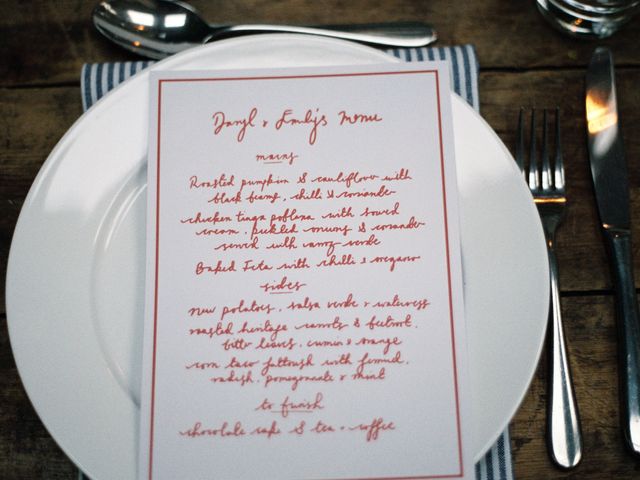 Daryl & Emily's Menu
mains
Roasted pumpkin & cauliflower with
black beans, chilli & coriander
chicken tinga poblana with soured
cream, pickled onions & coriander
served with arroz verde
Baked Feta with chilli & oregano
sides
new potatoes, salsa verde & watercress
roasted heritage carrots & beetroot,
bitter leaves, cumin & orange
corn taco fattoush with fennel,
radish, pomegranate & mint
to finish
chocolate cake & tea & coffee